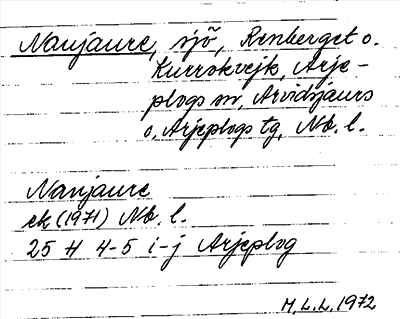 Naujaure, sjö, Renberget o.
Kurrokvejk, Arje-
plogs sn, Arvidsjaurs
o. Arjeplogs tg, Nb. l.
Naujaure
ek (1971) Nb. l.
25 H 4-5 i-j Arjeplog
M.L.L. 1972